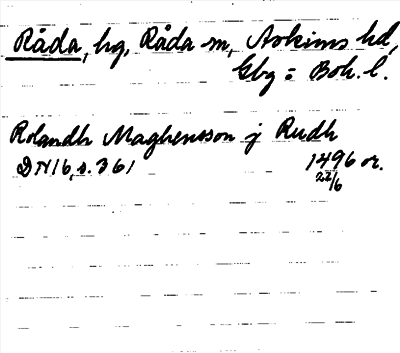 Råda, hg, Råda sn, Askims hd,
Gbg = Boh. l.
Rolandh Maghensson j Rudh
DN 16, s. 361 1496 or.
22/6